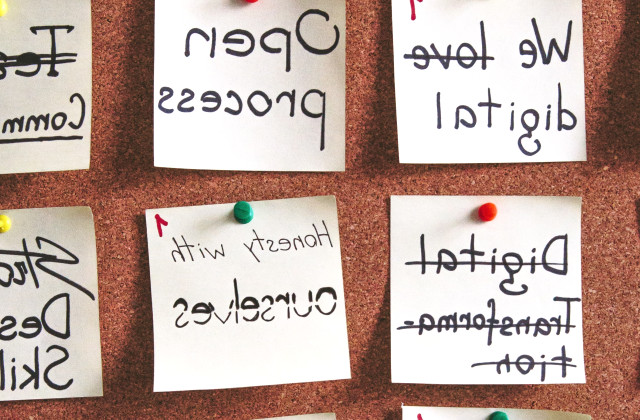 1
We love
digital
Open
process
Tea
Comm
Digital
Transforma-
tion
1
Honesty with
ourselves
Stro
Des
Skil